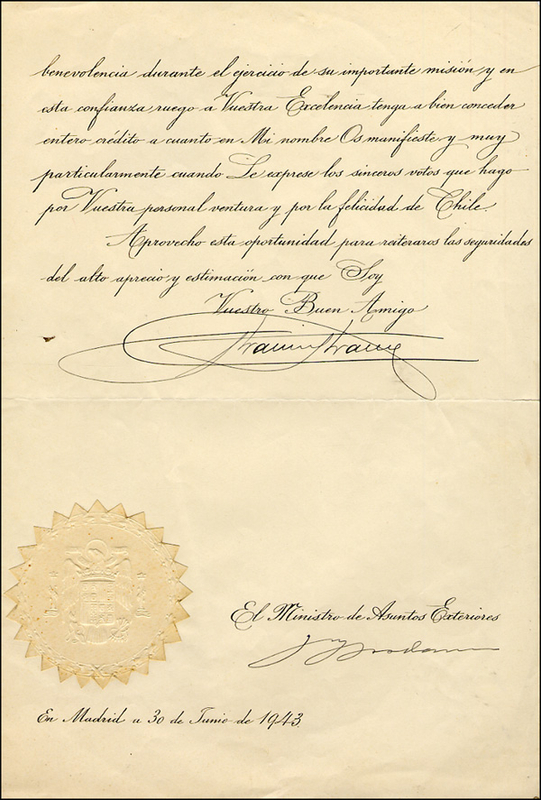 benevolencia durante el ejercicio de su importante misión, y en
esta confianza, ruego a Vuestra Excelencia tenga a bien conceder
entero crédito a cuanto en Mi nombre Os manifieste y muy
particularmente cuando Le exprese los sinceros votos que hago
por Vuestra personal ventura y por la felicidad de Chile.
Aprovecho esta oportunidad para reiteraros las seguridades
del alto aprecio y estimación con que Soy
Vuestro Buen Amigo
El Ministro de Asuntos Exteriores
En Madrid a 30 de Junio de 1943.